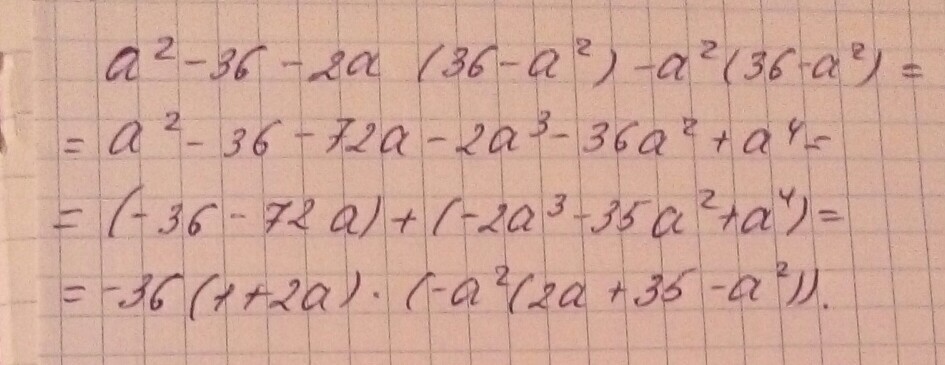 a² - 36 - 2a (36 - a²) - a²(36 - a²) =
= a² - 36 - 72a - 2a³ - 36a² + a⁴ =
= (-36 - 72a) + (-2a³ - 35a² + a⁴) =
= -36(1 + 2a) · (-a²(2a + 35 - a²)).